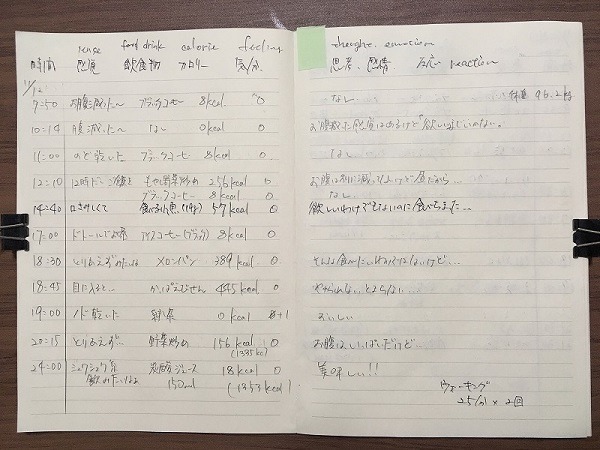 sense food drink calorie feeling
時間 感覚 飲食物 カロリー 気分
11/12
9:50 お腹減った〜 ブラックコーヒー 8kcal 0
10:14 腹減った〜 なし 0kcal 0
11:00 のど乾いた ブラックコーヒー 8kcal 0
12:10 12時だし もやし野菜炒め 256kcal 0
ブラックコーヒー 8kcal 0
14:40 口さみしくて 食べる小魚 57kcal 0
17:00 ドトールでお茶 アイスコーヒー(ブラック) 8kcal 0
18:30 とりあえず メロンパン 389kcal 0
18:45 目に入ると… かっぱえびせん 445kcal 0
19:00 ノド乾いた 0kcal +1
20:15 とりあえず… 野菜炒め 156kcal 0
(1335kc)
24:00 シュワシュワ系 炭酸ジュース 18kcal 0
飲みたいなぁ 150ml (1353kcal)
thought. emotion
思考、感情 反応 reaction
なし 体重 96.2kg
お腹減った感覚はあるけど
なし
お腹は別に減ってないけど昼だから…
なし
欲しいわけでもないのに食べちまった…
そんな食べたいわけではないけど…
やめられないとまらない…
おいしい
お腹はいっぱいだけど…
美味しい!!
ウォーキング
25分 × 2回